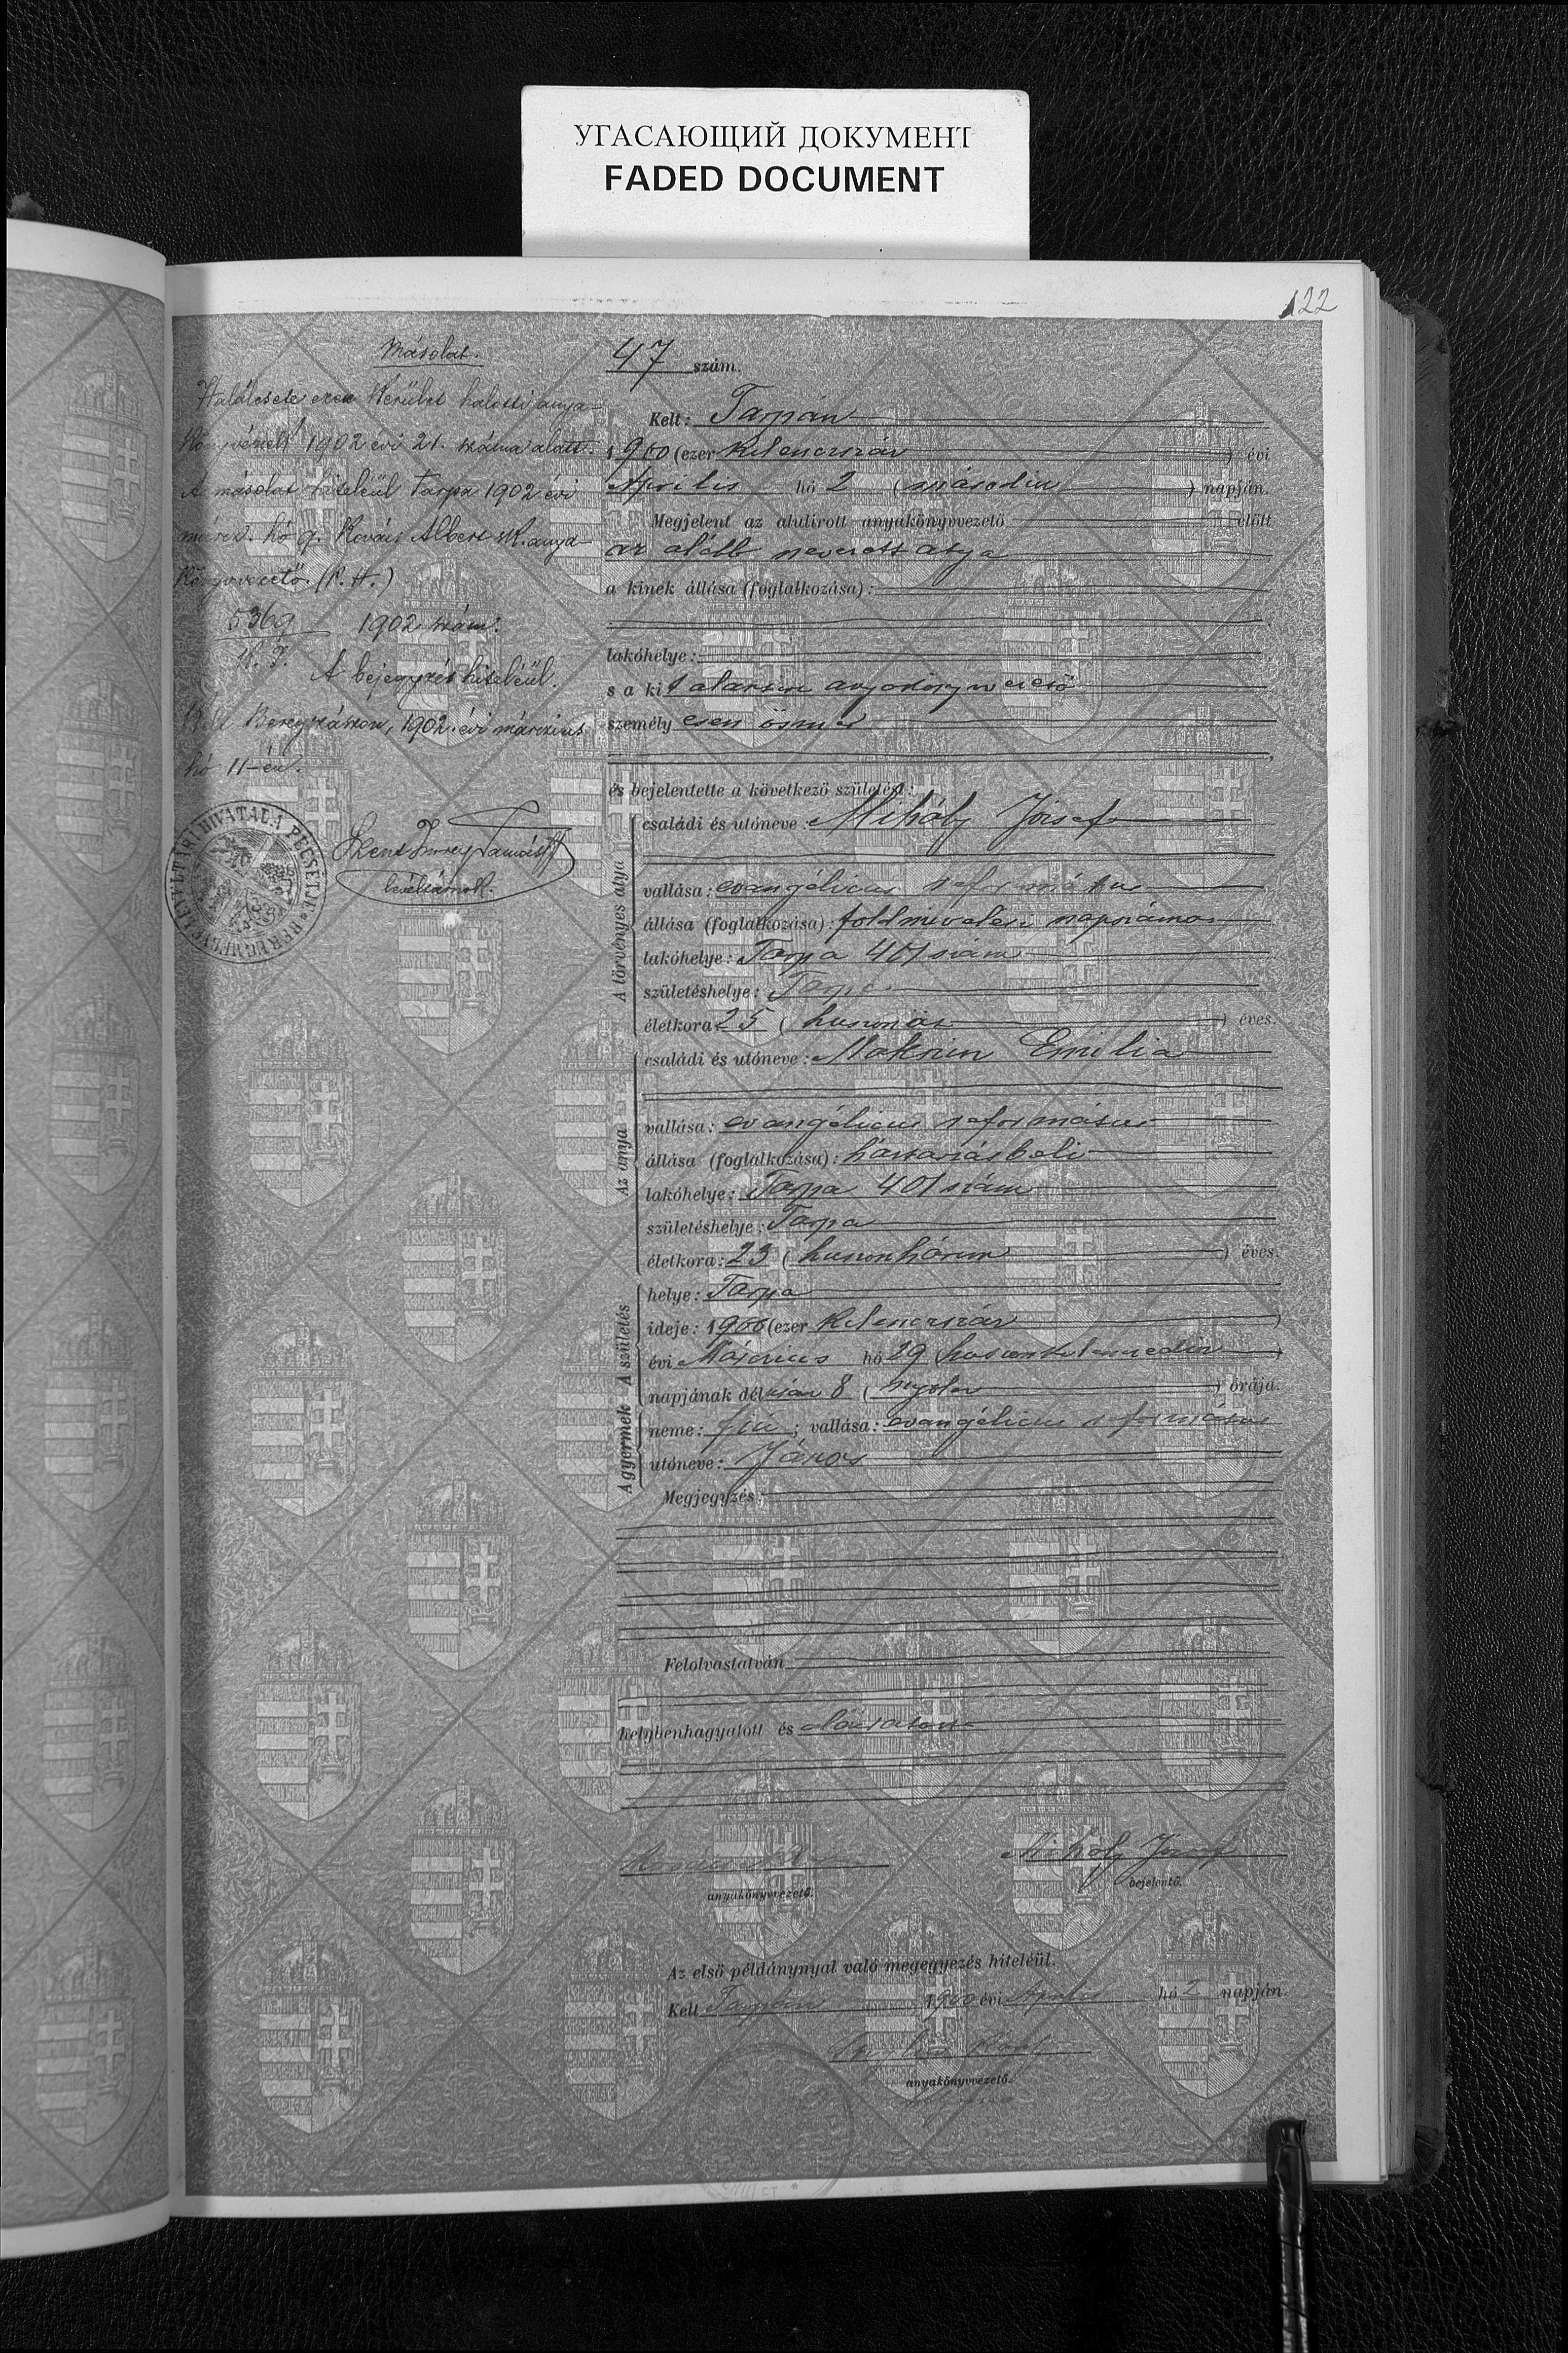 УГАСАЮЩИЙ ДОКУМЕНТ
FADED DOCUMENT
122
Másolat.
Halálesete ezen kerület halotti anya-
könyvének 1902 évi 21. száma alatt.
A másolat hiteléül Tarpa 1902 évi
márcz. hó 9. Kovács Albert sk. anya-
könyvvezető. (P. H.)
5369 1902 szám.
A bejegyzés hiteléül.
Kelt Beregszászon, 1902. évi márczius
hó 11-én.
Szent Imrey Tamás
levéltárnok.
47 szám.
Kelt: Tarpán
1900 (ezer kilenczszáz ) évi
Április hó 2 (második ) napján.
Megjelent az alulirott anyakönyvvezető előtt
az alább nevezett atya
a kinek állása (foglalkozása):
lakóhelye:
s a kit alantirt anyakönyvvezető
személy esen ösmer
és bejelentette a következő születést:
A törvényes atya
családi és utóneve: Mihály József
vallása: evangélicus református
állása (foglalkozása): földmivelési napszámos
lakóhelye: Tarpa 401 szám
születéshelye: Tarpa
életkora: 25 ( huszonöt ) éves.
Az anya
családi és utóneve: Maksim Emilia
vallása: evangélicus református
állása (foglalkozása): háztartásbeli
lakóhelye: Tarpa 401 szám
születéshelye: Tarpa
életkora: 23 ( huszonhárom ) éves.
A születés
helye: Tarpa
ideje: 1900 (ezer kilenczszáz )
évi Márczius hó 29 (huszonkilenczedik )
napjának délután 8 ( nyolcz ) órája.
A gyermek
neme: fiú; vallása: evangélicus református
utóneve: János
Megjegyzés:
Felolvastatván
helybenhagyatott és aláiratott
Mihály József
anyakönyvvezető.
bejelentő.
Az első példánynyal való megegyezés hiteléül.
Kelt Tarpán 1900 évi Április hó 2 napján
anyakönyvvezető